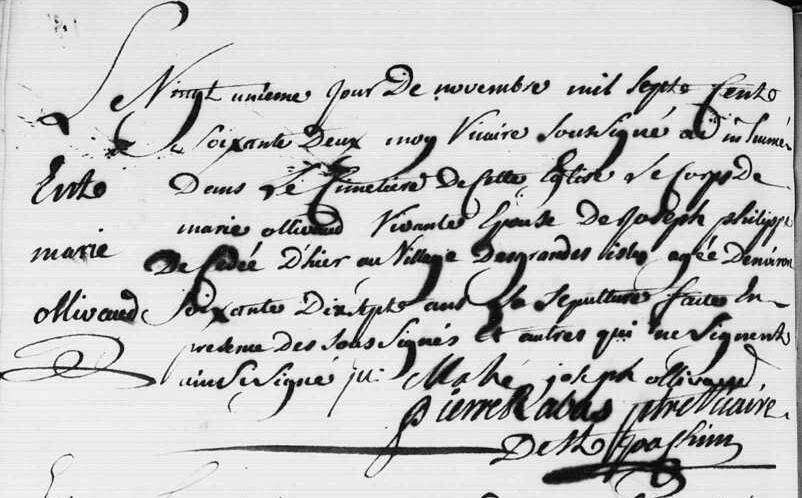 Le Vingt unieme jour De novembre mil Sept Cent
Soixante Deux moy Vicaire Soussigné ai inhumé
Ente Dans Le Cimetiere De Cette Eglise Le Corps de
marie ollivaud Vivante Epouse De Joseph philippe
marie Decedée D'hier au Village Des grandes isles agée Denviron
ollivaud Soixante Dixsept ans La Sepulture faite En
presence Des Sous Signés Et autres qui ne Signent
ainsi Signé Mahé joseph ollivaud
pierre Rabas ptre Vicaire
De St Joachim